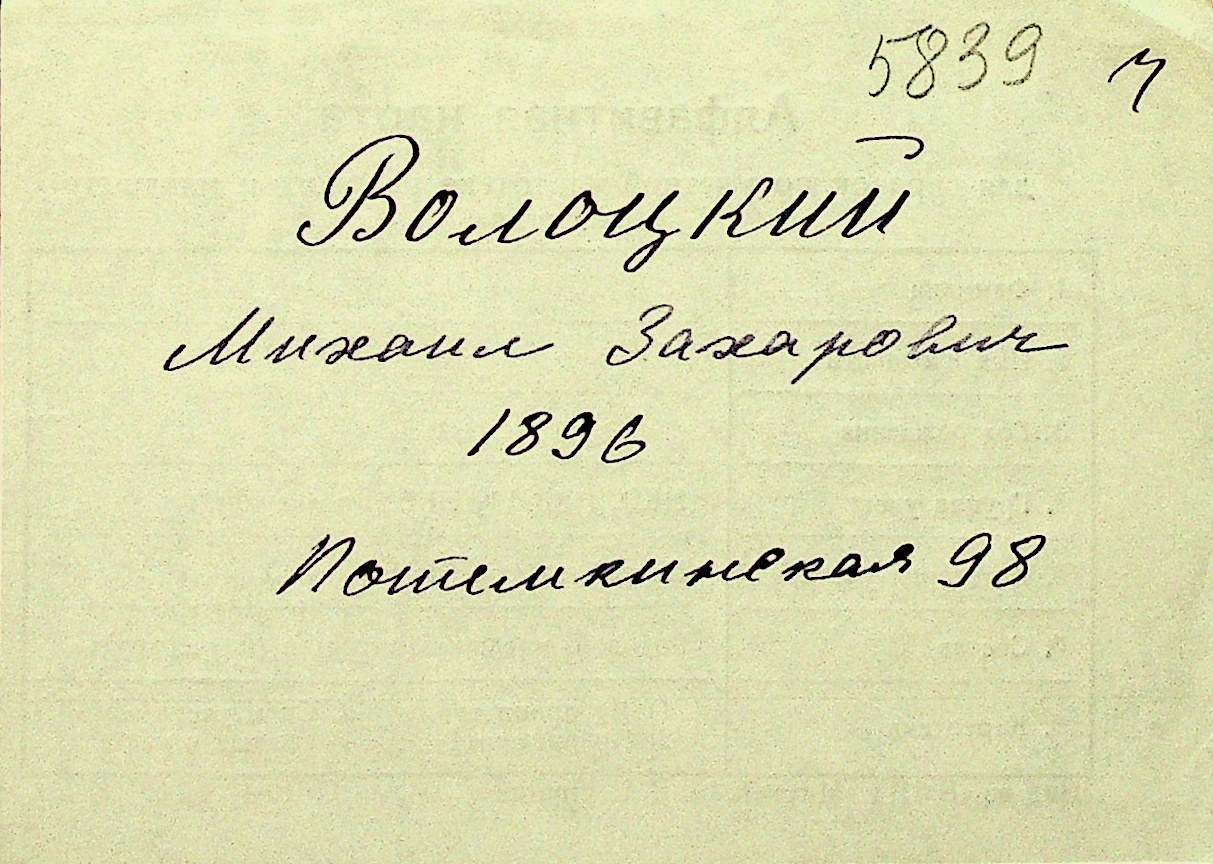 5839 ч
Волоцкий
Михаил Захарович
1896
Потемкинская 98